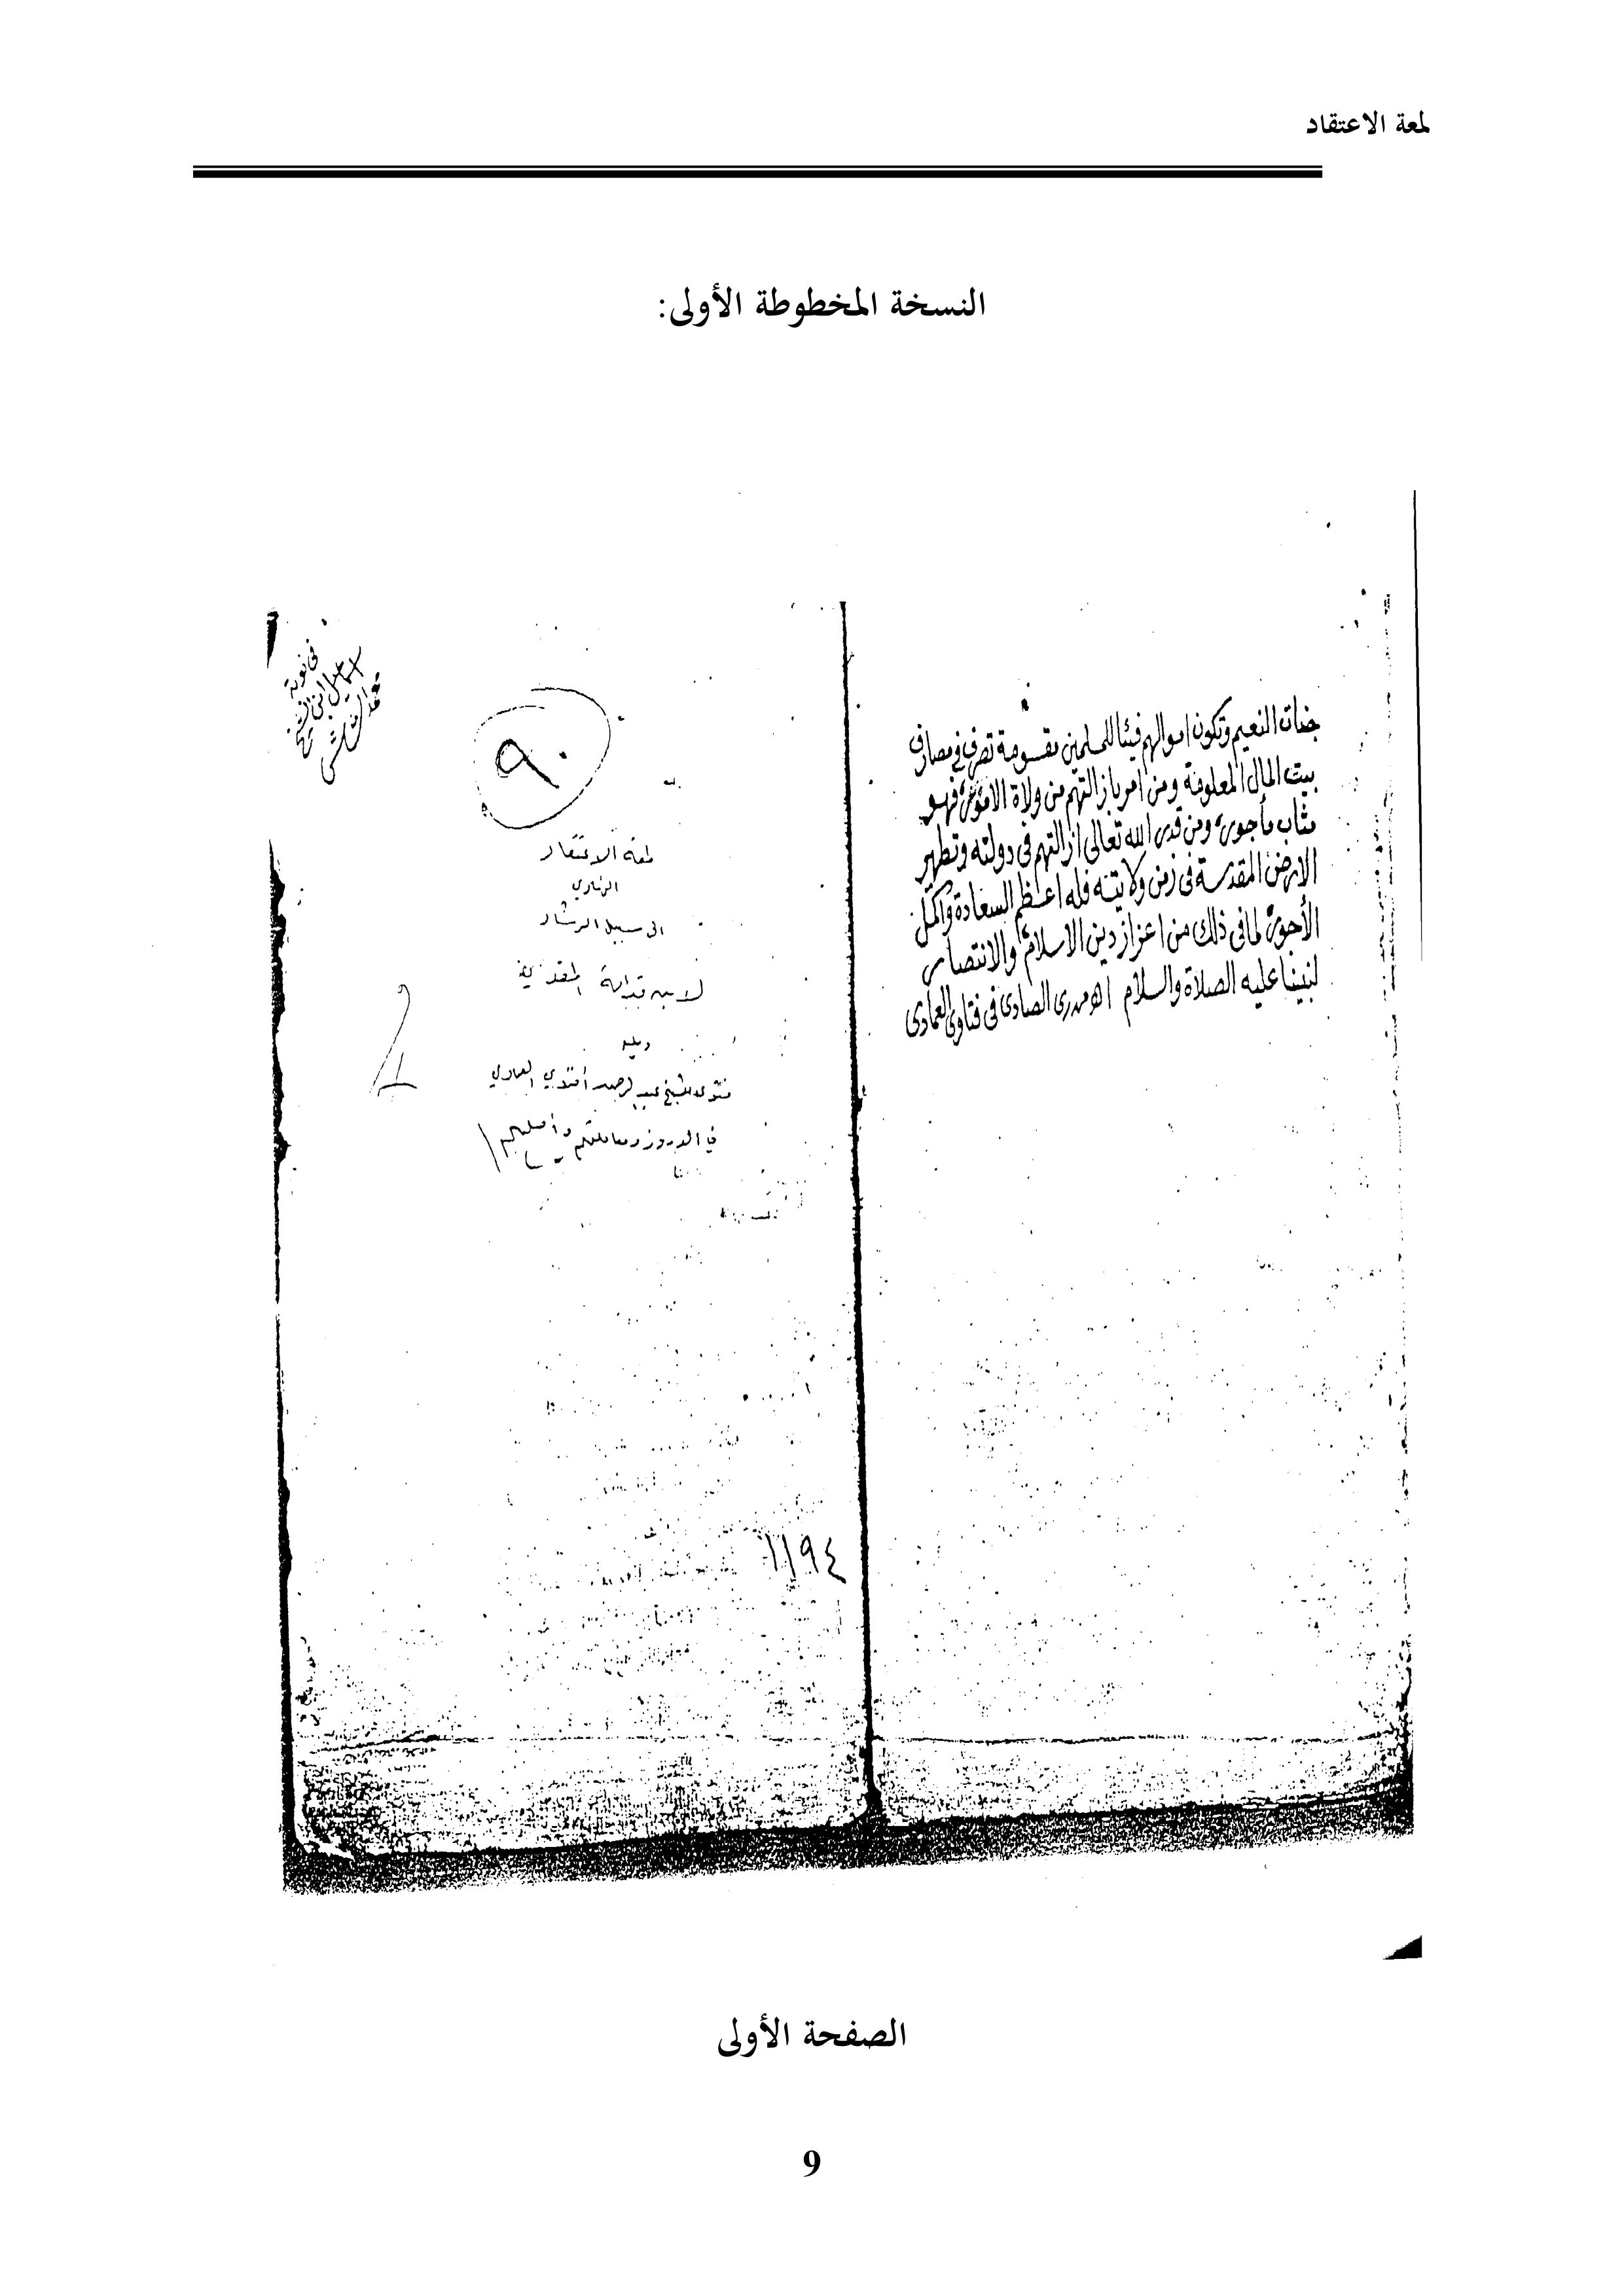 لمعة الاعتقاد
النسخة المخطوطة الأولى:
جنات النعيم وتكون اموالهم فيئا للمسلمين مقسومة تصرف في مصارف
بيت المال المعلومة ومن امر بازالتهم من ولاة الامور فهو
مثاب مأجور ومن قدر الله تعالى ازالتهم في دولته وتطهير
الارض المقدسة في زمن ولايته فله اعظم السعادة واكمل
الأجور لما في ذلك من اعزاز دين الاسلام والانتصار
لنبينا عليه الصلاة والسلام اه مهدى الصادى في فتاوى العمادى
٩٠
لمعة الاعتقاد
الهادي
الى سبيل الرشاد
لابن قدامة المقدسي
ويليه
فتوى للشيخ عبد الرحمن أفندي العمادي
في الدروز ومعاملتهم
١١٩٤
الصفحة الأولى
9